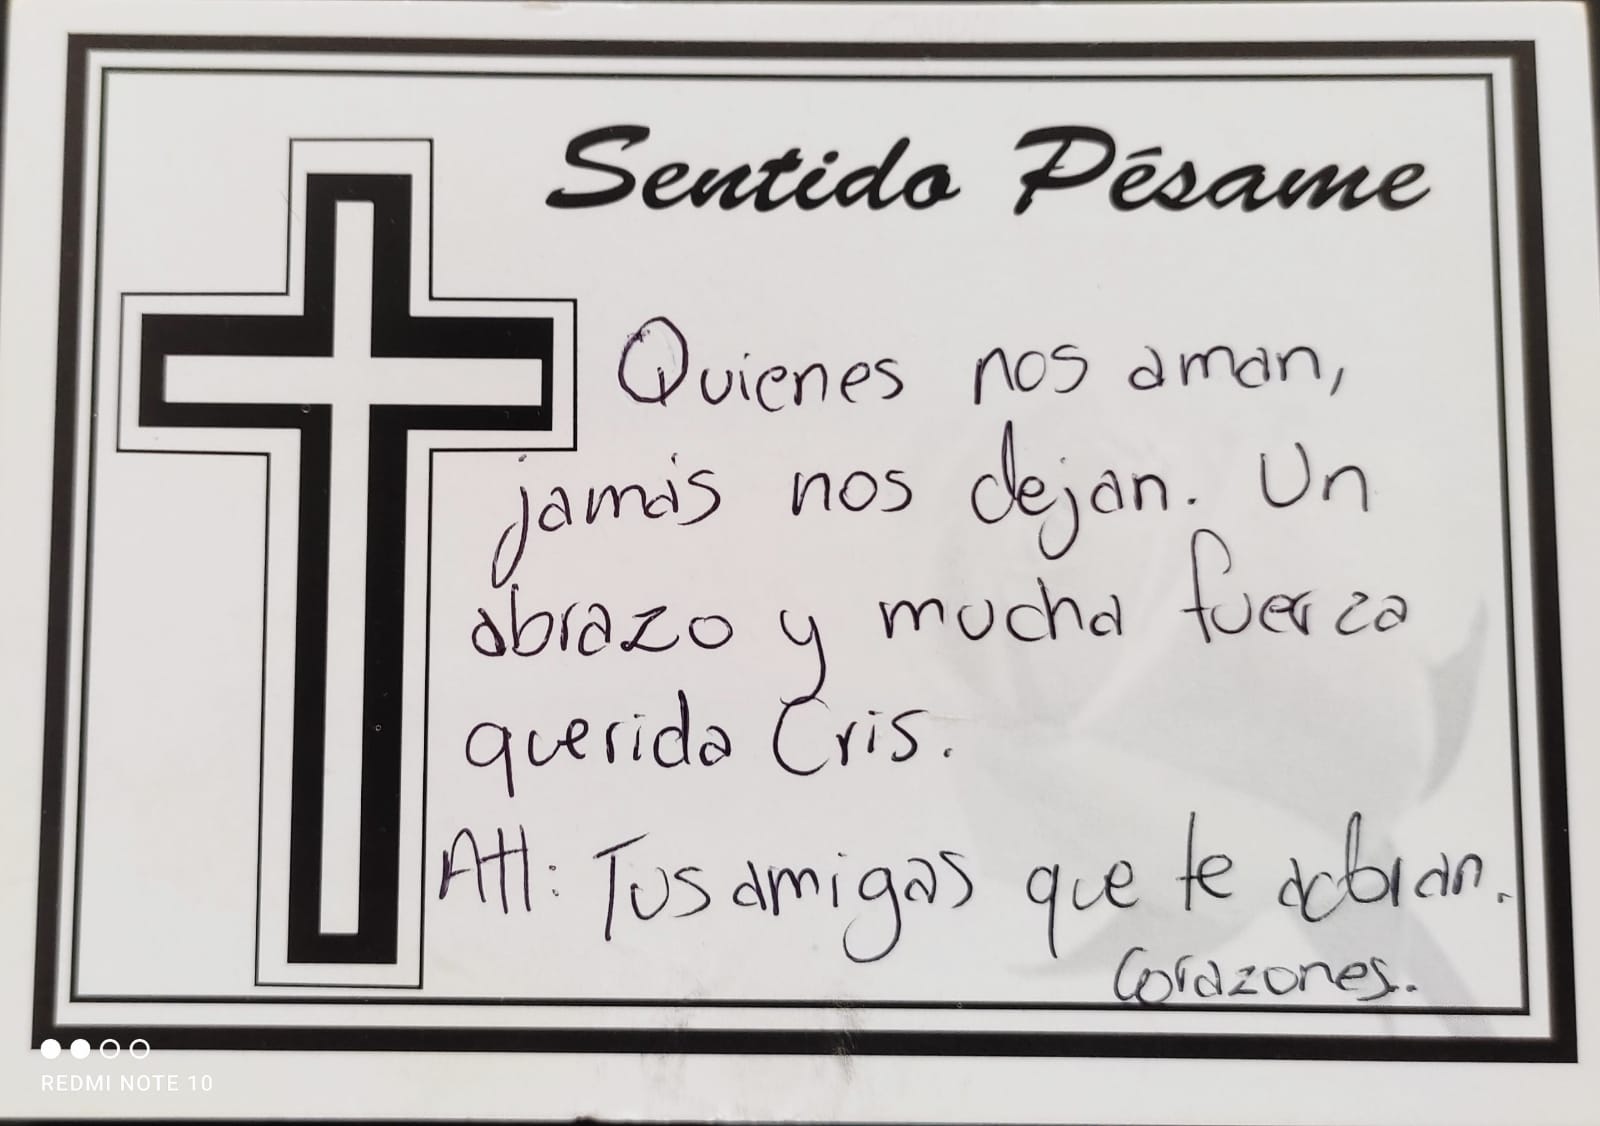 Sentido Pésame
Quienes nos aman,
jamás nos dejan. Un
abrazo y mucha fuerza
querida Cris.
Att: Tus amigas que te adoran.
Corazones.
REDMI NOTE 10